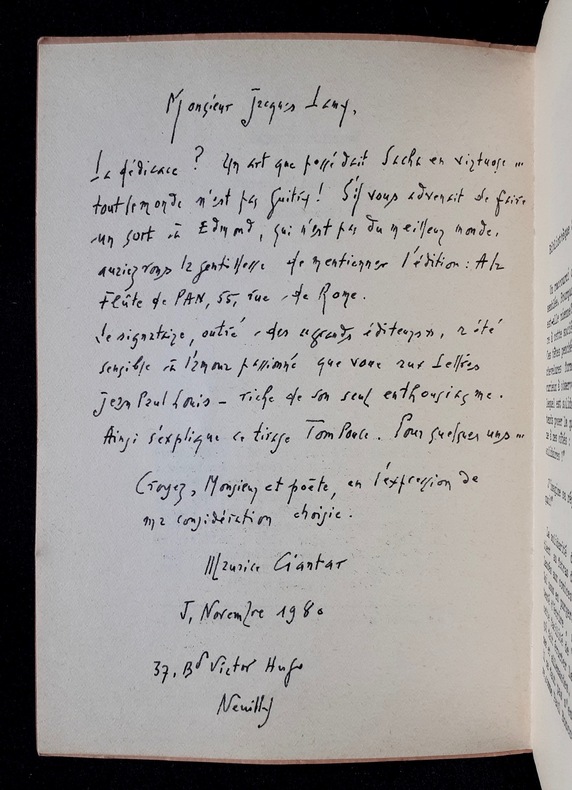 Monsieur Jacques Lamy,
La dédicace ? Un art que possédait Sacha en virtuose ...
tout le monde n'est pas Guitry ! S'il vous advenait de faire
un sort à Edmond, qui n'est pas du meilleur monde,
auriez vous la gentillesse de mentionner l'édition : A la
Flûte de PAN, 55, rue de Rome.
Le signataire, outré des grands éditeurs, a été
sensible à l'amour passionné que voue aux Lettres
Jean Paul Louis – riche de son seul enthousiasme.
Ainsi s'explique ce tirage Tom Pouce. Pour quelques uns ...
Croyez, Monsieur et poète, en l'expression de
ma considération choisie.
Maurice Ciantar
5, Novembre 1980
37, Bd Victor Hugo
Neuilly